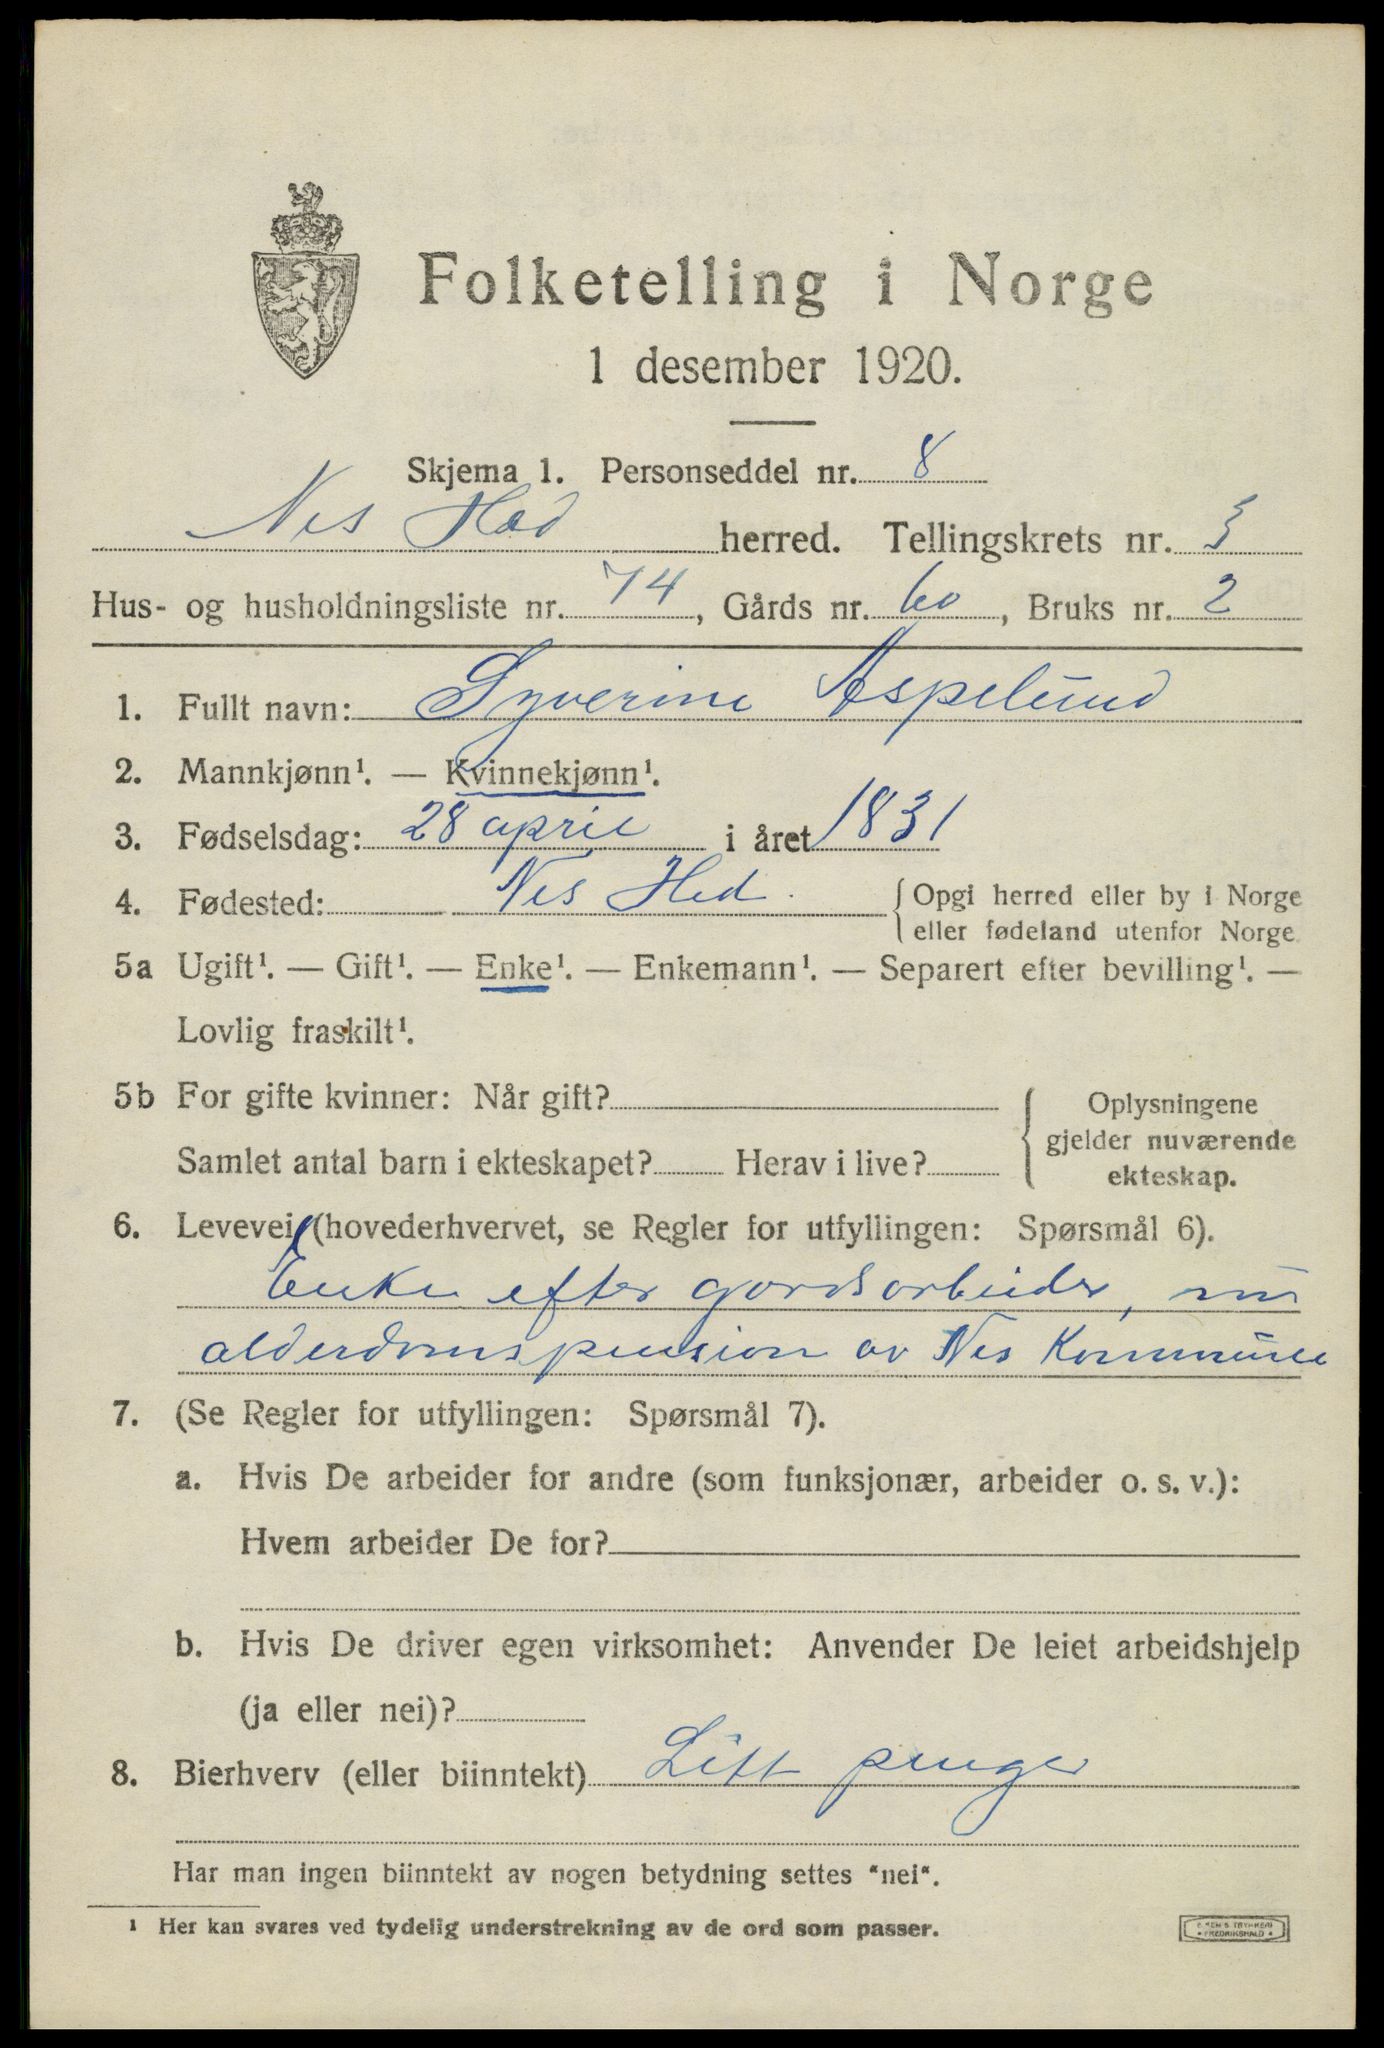 Folketelling i Norge
1 desember 1920.
Skjema 1. Personseddel nr. 8
Nes Hed herred. Tellingskrets nr. 3
Hus- og husholdningsliste nr. 74, Gårds nr. 60, Bruks nr. 2
1. Fullt navn: Syverine Aspelund
2. Mannkjønn¹. — Kvinnekjønn¹.
3. Fødselsdag: 28 april i året 1831
4. Fødested: Nes Hed. { Opgi herred eller by i Norge
eller fødeland utenfor Norge.
5a Ugift¹. — Gift¹. — Enke¹. — Enkemann¹. — Separert efter bevilling¹. —
Lovlig fraskilt¹.
5b For gifte kvinner: Når gift?
Samlet antal barn i ekteskapet? Herav i live?
{ Oplysningene
gjelder nuværende
ekteskap.
6. Levevei (hovederhvervet, se Regler for utfyllingen: Spørsmål 6).
Enke efter gårdsarbeider, nu
alderdomspension av Nes Kommune
7. (Se Regler for utfyllingen: Spørsmål 7).
a. Hvis De arbeider for andre (som funksjonær, arbeider o. s. v.):
Hvem arbeider De for?
b. Hvis De driver egen virksomhet: Anvender De leiet arbeidshjelp
(ja eller nei)?
8. Bierhverv (eller biinntekt) Litt penger
Har man ingen biinntekt av nogen betydning settes "nei".
¹ Her kan svares ved tydelig understrekning av de ord som passer.
FREDRIKSHALD